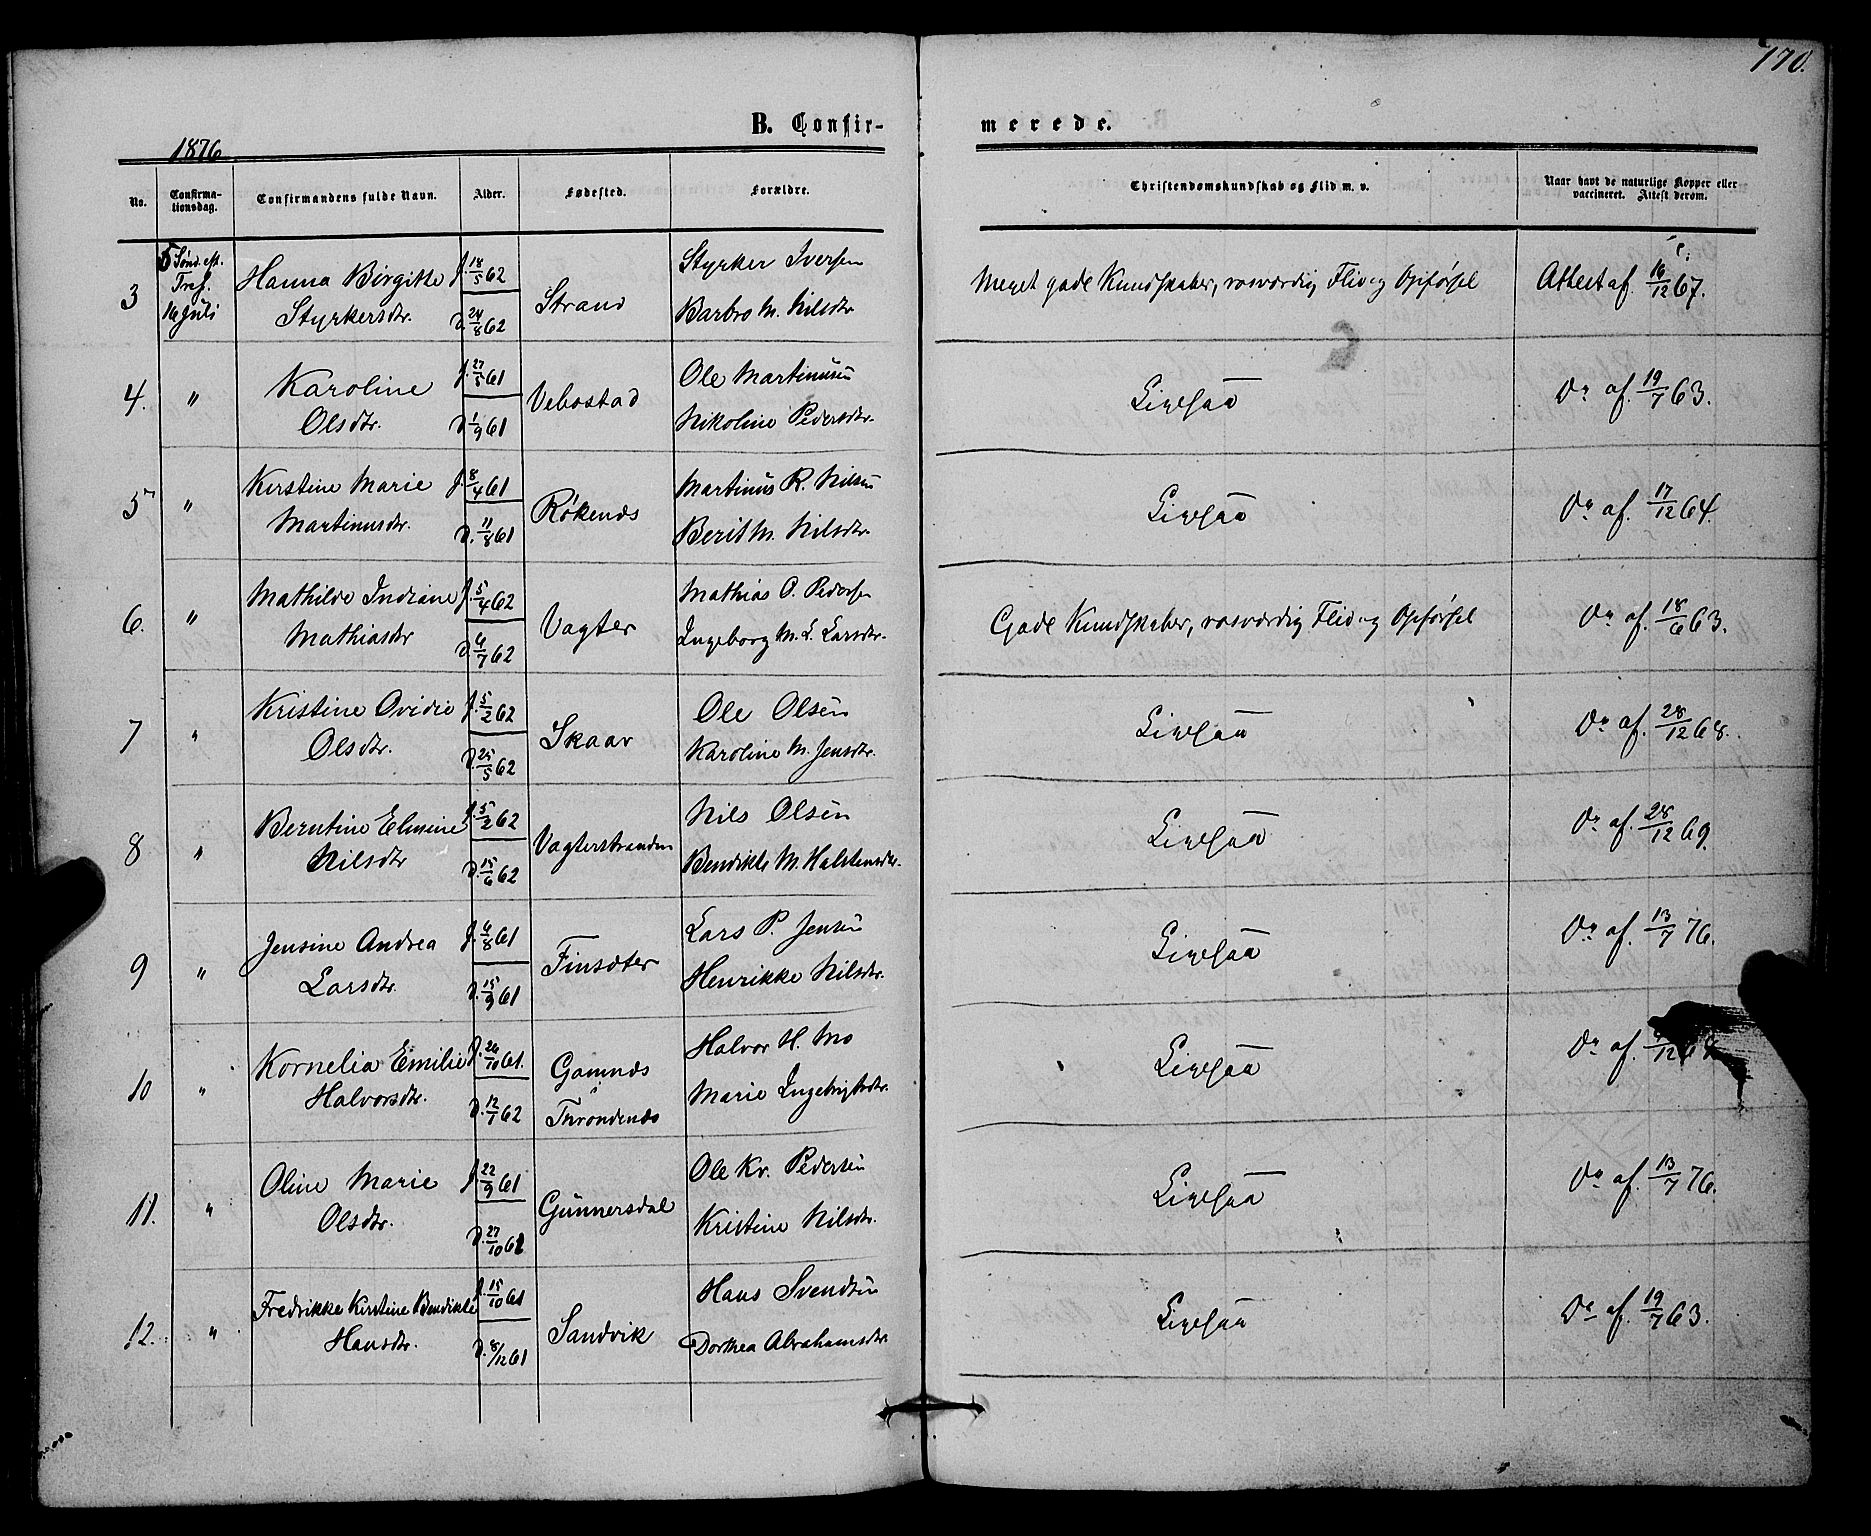 170.
B. Confir-
merede.
1876
No.
Confirma-
tionsdag.
Confirmandens fulde Navn.
Alder.
Fødested.
Forældre.
Christendomskundskab og Flid m. v.
Naar havt de naturlige Kopper eller
vaccineret. Attest derom.
3
5 Sønd. eft.
Tref.
16 Juli
Hanna Birgitte
Styrkersdtr.
f. 18/5 62
d. 24/8 62
Strand
Styrker Iversen
Barbro M. Nilsdtr
Meget gode Kundskaber, rosværdig Flid og Opførsel
Attest af. 16/12 67.
4. "
Karoline
Olsdtr.
f. 27/5 61
d. 1/9 61
Vebostad
Ole Martinusen
Nikoline Pedersdtr.
Ligesaa
Do af. 19/7 63.
5 "
Kirstine Marie
Martinusdtr.
f. 8/4 61
d. 11/8 61
Røkenæs
Martinus R. Nilsen
Berit M. Nilsdtr.
Ligesaa
Do af. 17/12 64.
6. "
Mathilde Indiane
Mathiasdtr
f. 5/4 62
d. 6/7 62
Vagter
Mathias P. Pedersen
Ingeborg M. L. Larsdtr.
Gode Kundskaber, rosværdig Flid og Opførsel
Do af. 18/6 63.
7 "
Kristine Ovidie
Olsdtr.
f. 5/2 62
d. 25/5 62
Skaar
Ole Olsen
Karoline M. Jensdtr.
Ligesaa
Do af. 28/12 68.
8 "
Berntine Elmine
Nilsdtr
f. 5/2 62
d. 15/6 62
Vagterstranden
Nils Olsen
Bendikte M. Halstensdtr.
Ligesaa
Do af. 28/12 69.
9 "
Jensine Andrea
Larsdtr.
f. 6/8 61
d. 15/9 61
Finsæter
Lars P. Jensen
Henrikke Nilsdtr.
Ligesaa
Do af. 13/7 76.
10 "
Kornelia Emilie
Halvorsdtr.
f. 26/10 61.
d. 12/1 62
Gamnæs
Throndenæs
Halvor H. Mo
Marie Ingebrigtsdtr.
Ligesaa
Do af.
11. "
Oline Marie
Olsdtr.
f. 22/9 61
d. 27/10 61
Gunnersdal
Ole Kr. Pedersen
Kristine Nilsdtr.
Ligesaa
Do af. 13/7 76.
12. "
Fredrikke Kirstine Bendikte
Hansdtr.
f. 15/10 61
d. 8/12 61
Sandvik
Hans Svendsen
Dorthea Abrahamsdtr.
Ligesaa
Do af. 19/7 63.